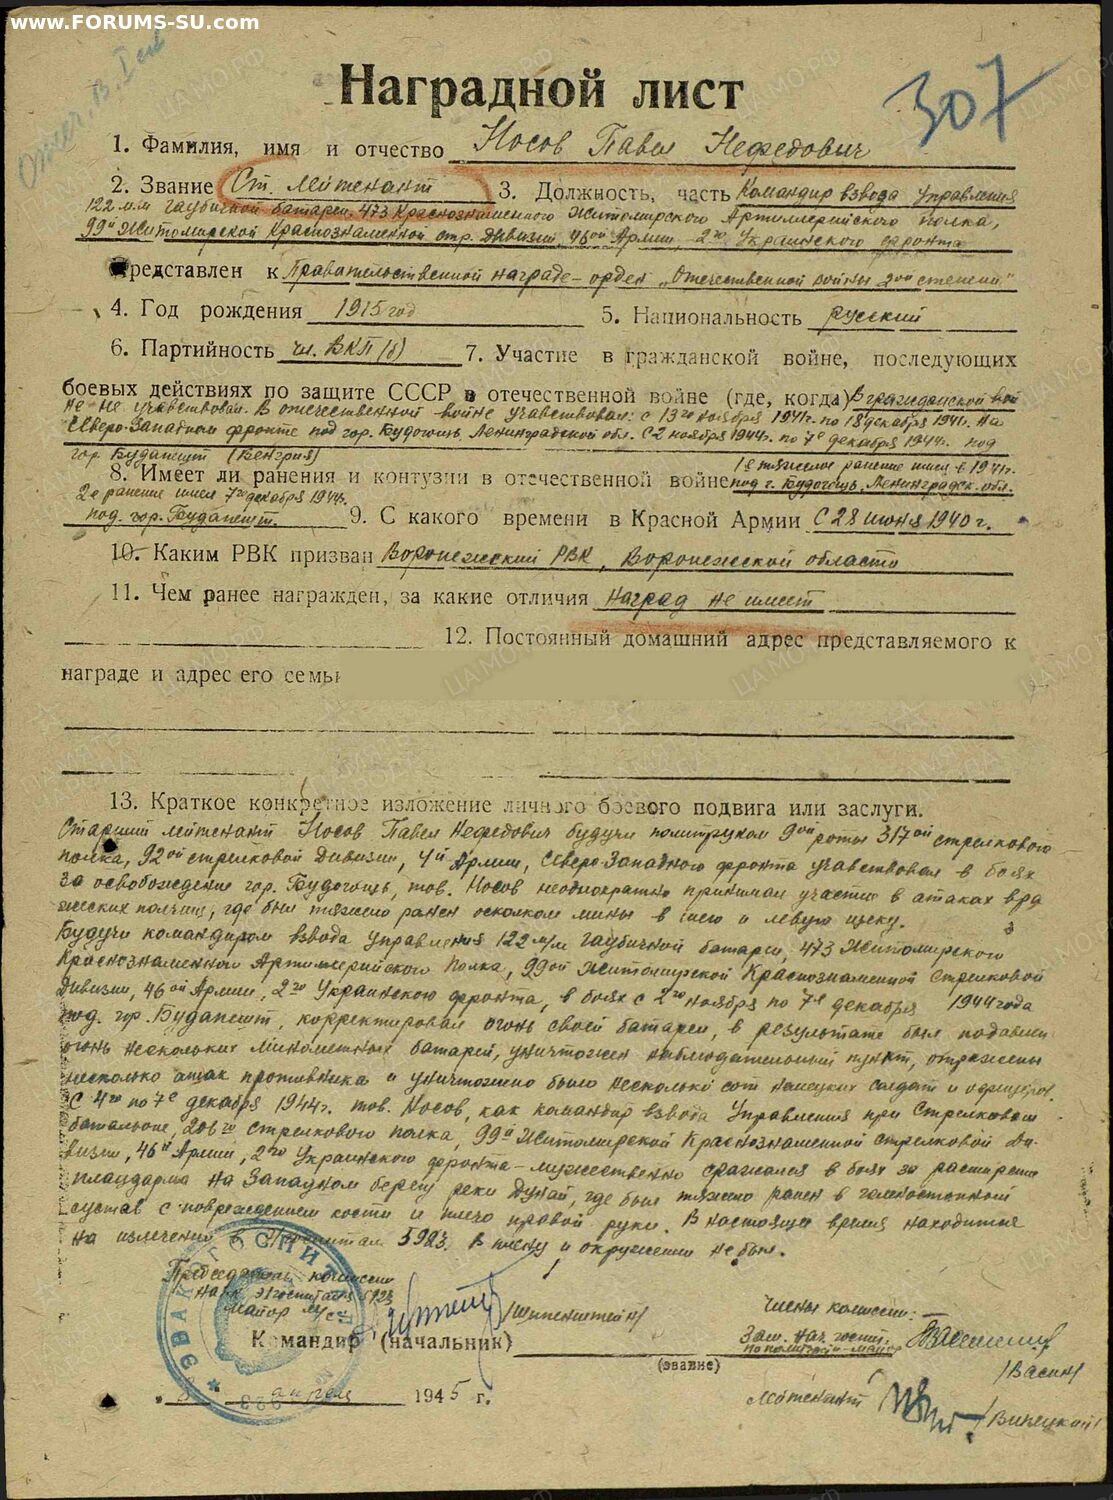 www.FORUMS-SU.com
Отеч. В. I ст
307
Наградной лист
1. Фамилия, имя и отчество Носов Павел Нефедович
2. Звание Ст. лейтенант 3. Должность, часть Командир взвода управления
122 м/м гаубичной батареи, 473 Краснознаменного Житомирского Артиллерийского полка,
99ой Житомирской Краснознаменной стр. Дивизии, 46ой Армии, 2го Украинского фронта
Представлен к Правительственной награде - орден „Отечественной войны 2ой степени"
4. Год рождения 1915 год 5. Национальность русский
6. Партийность чл. ВКП(б) 7. Участие в гражданской войне, последующих
боевых действиях по защите СССР в отечественной войне (где, когда) В гражданской вой
не не учавствовал. В отечественной войне учавствовал: с 13го ноября 1941г. по 18 декабря 1941г. на
Северо-Западном фронте под гор. Будогощь, Ленинградской обл. С 2 ноября 1944г. по 7е декабря 1944г. под
гор. Будапешт (Венгрия)
8. Имеет ли ранения и контузии в отечественной войне 1е тяжелое ранение имел в 1941г.
под г. Будогощь, Ленинградск. обл.
2е ранение имел 7го декабря 1944г.
под. гор. Будапешт. 9. С какого времени в Красной Армии С 28 июня 1940 г.
10. Каким РВК призван Воронежский РВК, Воронежской области
11. Чем ранее награжден, за какие отличия наград не имеет
12. Постоянный домашний адрес представляемого к
награде и адрес его семьи
13. Краткое конкретное изложение личного боевого подвига или заслуги.
Старший лейтенант Носов Павел Нефедович будучи политруком 9ой роты 317ой стрелкового
полка, 92ой стрелковой Дивизии, 4й Армии, Северо Западного фронта учавствовал в боях
за освобождение гор. Будогощь, тов. Носов неоднократно принимал участие в атаках вра
жеских полчищ, где был тяжело ранен осколком мины в шею и левую щеку.
Будучи командиром взвода управления 122 м/м гаубичной батареи, 473 Житомирского
Краснознаменного Артиллерийского Полка, 99ой Житомирской Краснознаменной Стрелковой
Дивизии, 46ой Армии, 2го Украинского фронта, в боях с 2го ноября по 7е декабря 1944 года
под. гор. Будапешт, корректировал огонь своей батареи, в результате был подавлен
огонь нескольких минометных батарей, уничтожен наблюдательный пункт, отражены
несколько атак противника и уничтожено было несколько сот немецких солдат и офицеров.
С 4го по 7е декабря 1944г. тов. Носов, как командир взвода Управления при Стрелковом
батальоне, 206го стрелкового полка, 99й Житомирской Краснознаменной стрелковой Ди-
визии, 46й Армии, 2го Украинского фронта - мужественно сражался в боях за расширение
плацдарма на Западном берегу реки Дунай, где был тяжело ранен в голеностопный
сустав с повреждением кости и плечо правой руки. В настоящее время находится
на излечении в Госпитале 5923. В плену и окружении не был.
Председатель комиссии
Нач. Э/госпиталя 5923
Майор м/с
Командир (начальник) /Шипенштейн/
(звание)
Члены комиссии:
Зам. нач. госпит.
по политчасти - майор
/Васин/
Лейтенант /Винецкий/
апреля 1945 г.
ЭВАКОГОСПИТ